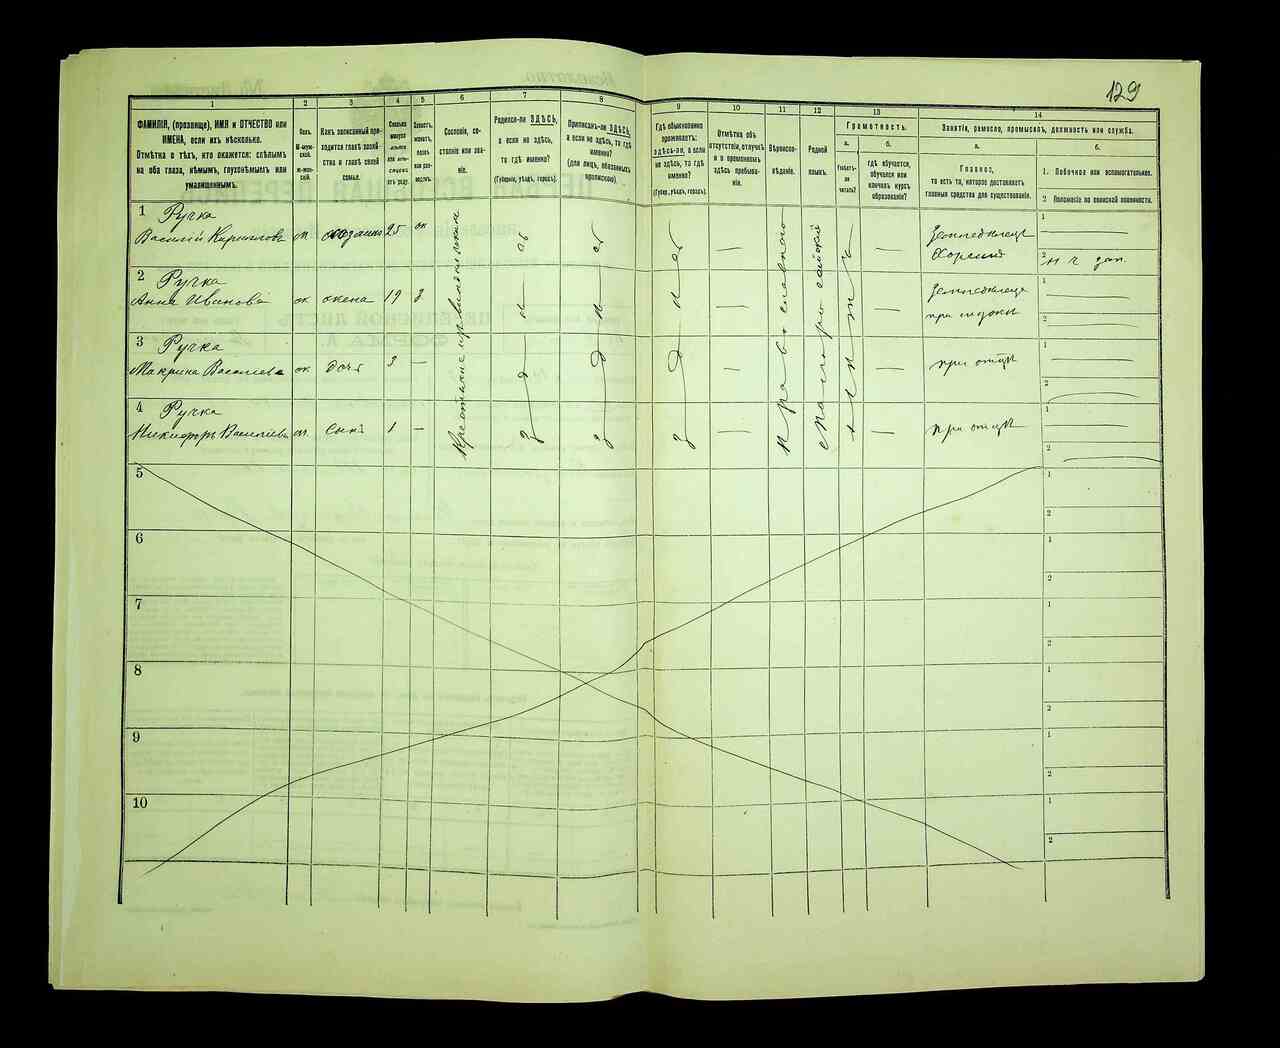 129
1
2
3
4
5
6
7
8
9
10
11
12
13
14
ФАМИЛІЯ, (прозвище), ИМЯ и ОТЧЕСТВО или
ИМЕНА, если ихъ нѣсколько.
Отмѣтка о тѣхъ, кто окажется: слѣпымъ
на оба глаза, нѣмымъ, глухонѣмымъ или
умалишеннымъ.
Полъ.
М-муж-
ской.
Ж-жен-
скій.
Какъ записанный при-
ходится главѣ хозяй-
ства и главѣ своей
семьи.
Сколько
минуло
лѣтъ
Холостъ,
женатъ,
вдовъ
или раз-
веденъ.
Сословіе, со-
стояніе или зва-
ніе.
Родился-ли ЗДѢСЬ,
а если не здѣсь,
то гдѣ именно?
(Губернія, уѣздъ, городъ).
Приписанъ-ли ЗДѢСЬ,
а если не здѣсь, то гдѣ
именно?
(для лицъ, обязанныхъ
припискою).
Гдѣ обыкновенно
проживаетъ:
здѣсь-ли, а если
не здѣсь, то гдѣ
именно?
(Губер., уѣздъ, городъ).
Отмѣтка объ
отсутствіи, отлучкѣ
и о временномъ
здѣсь пребыва-
ніи.
Вѣроиспо-
вѣданіе.
Родной
языкъ.
Грамотность.
а.
Умѣетъ-
ли
читать?
б.
гдѣ обучается,
обучался или
кончилъ курсъ
образованія?
Занятіе, ремесло, промыселъ, должность или служба.
а.
Главное,
то есть то, которое доставляетъ
главныя средства для существованія.
б.
1. Побочное или вспомогательное.
2 Положеніе по воинской повинности.
1 Ручка
Василій Кириллова м хозяинъ 25 ж
Крестьянинъ
здѣсь
здѣсь
здѣсь
—
православное
малороссійскій
—
Земледѣлецъ
1
2 н ч зап.
2 Ручка
Анна Иванова ж жена 19 з
—
—
Земледѣлецъ
1
2
3 Ручка
Макрина Васильева ж дочь 3 —
—
—
при отцѣ
1
2
4 Ручка
Никифоръ Васильевъ м. сынъ 1 —
—
—
при отцѣ
1
2
5
1
2
6
1
2
7
1
2
8
1
2
9
1
2
10
1
2